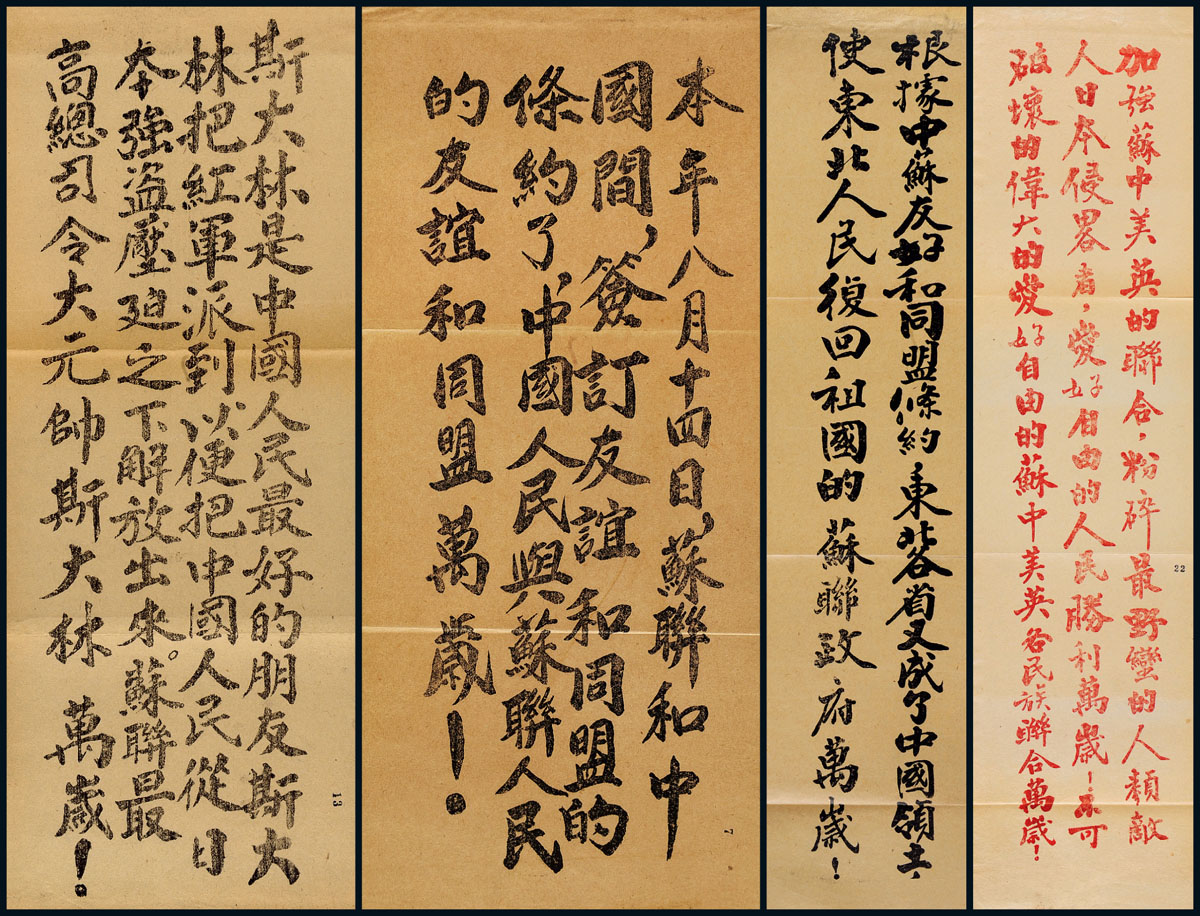 斯大林是中國人民最好的朋友斯大
林把紅軍派到以便把中國人民從日
本強盜壓迫之下解放出來。蘇聯最
高總司令大元帥斯大林 萬歲！
13
本年八月十四日，蘇聯和中
國間，簽訂友誼和同盟的
條約了，中國人民與蘇聯人民
的友誼和同盟萬歲！
7
根據中蘇友好和同盟條約 東北各省又成了中國領土，
使東北人民復回祖國的 蘇聯政府萬歲！
加強蘇中美英的聯合，粉碎最野蠻的人類敵
人日本侵畧者，愛好自由的人民勝利萬歲！不可
破壞的偉大的愛好自由的蘇中美英各民族聯合萬歲！
22